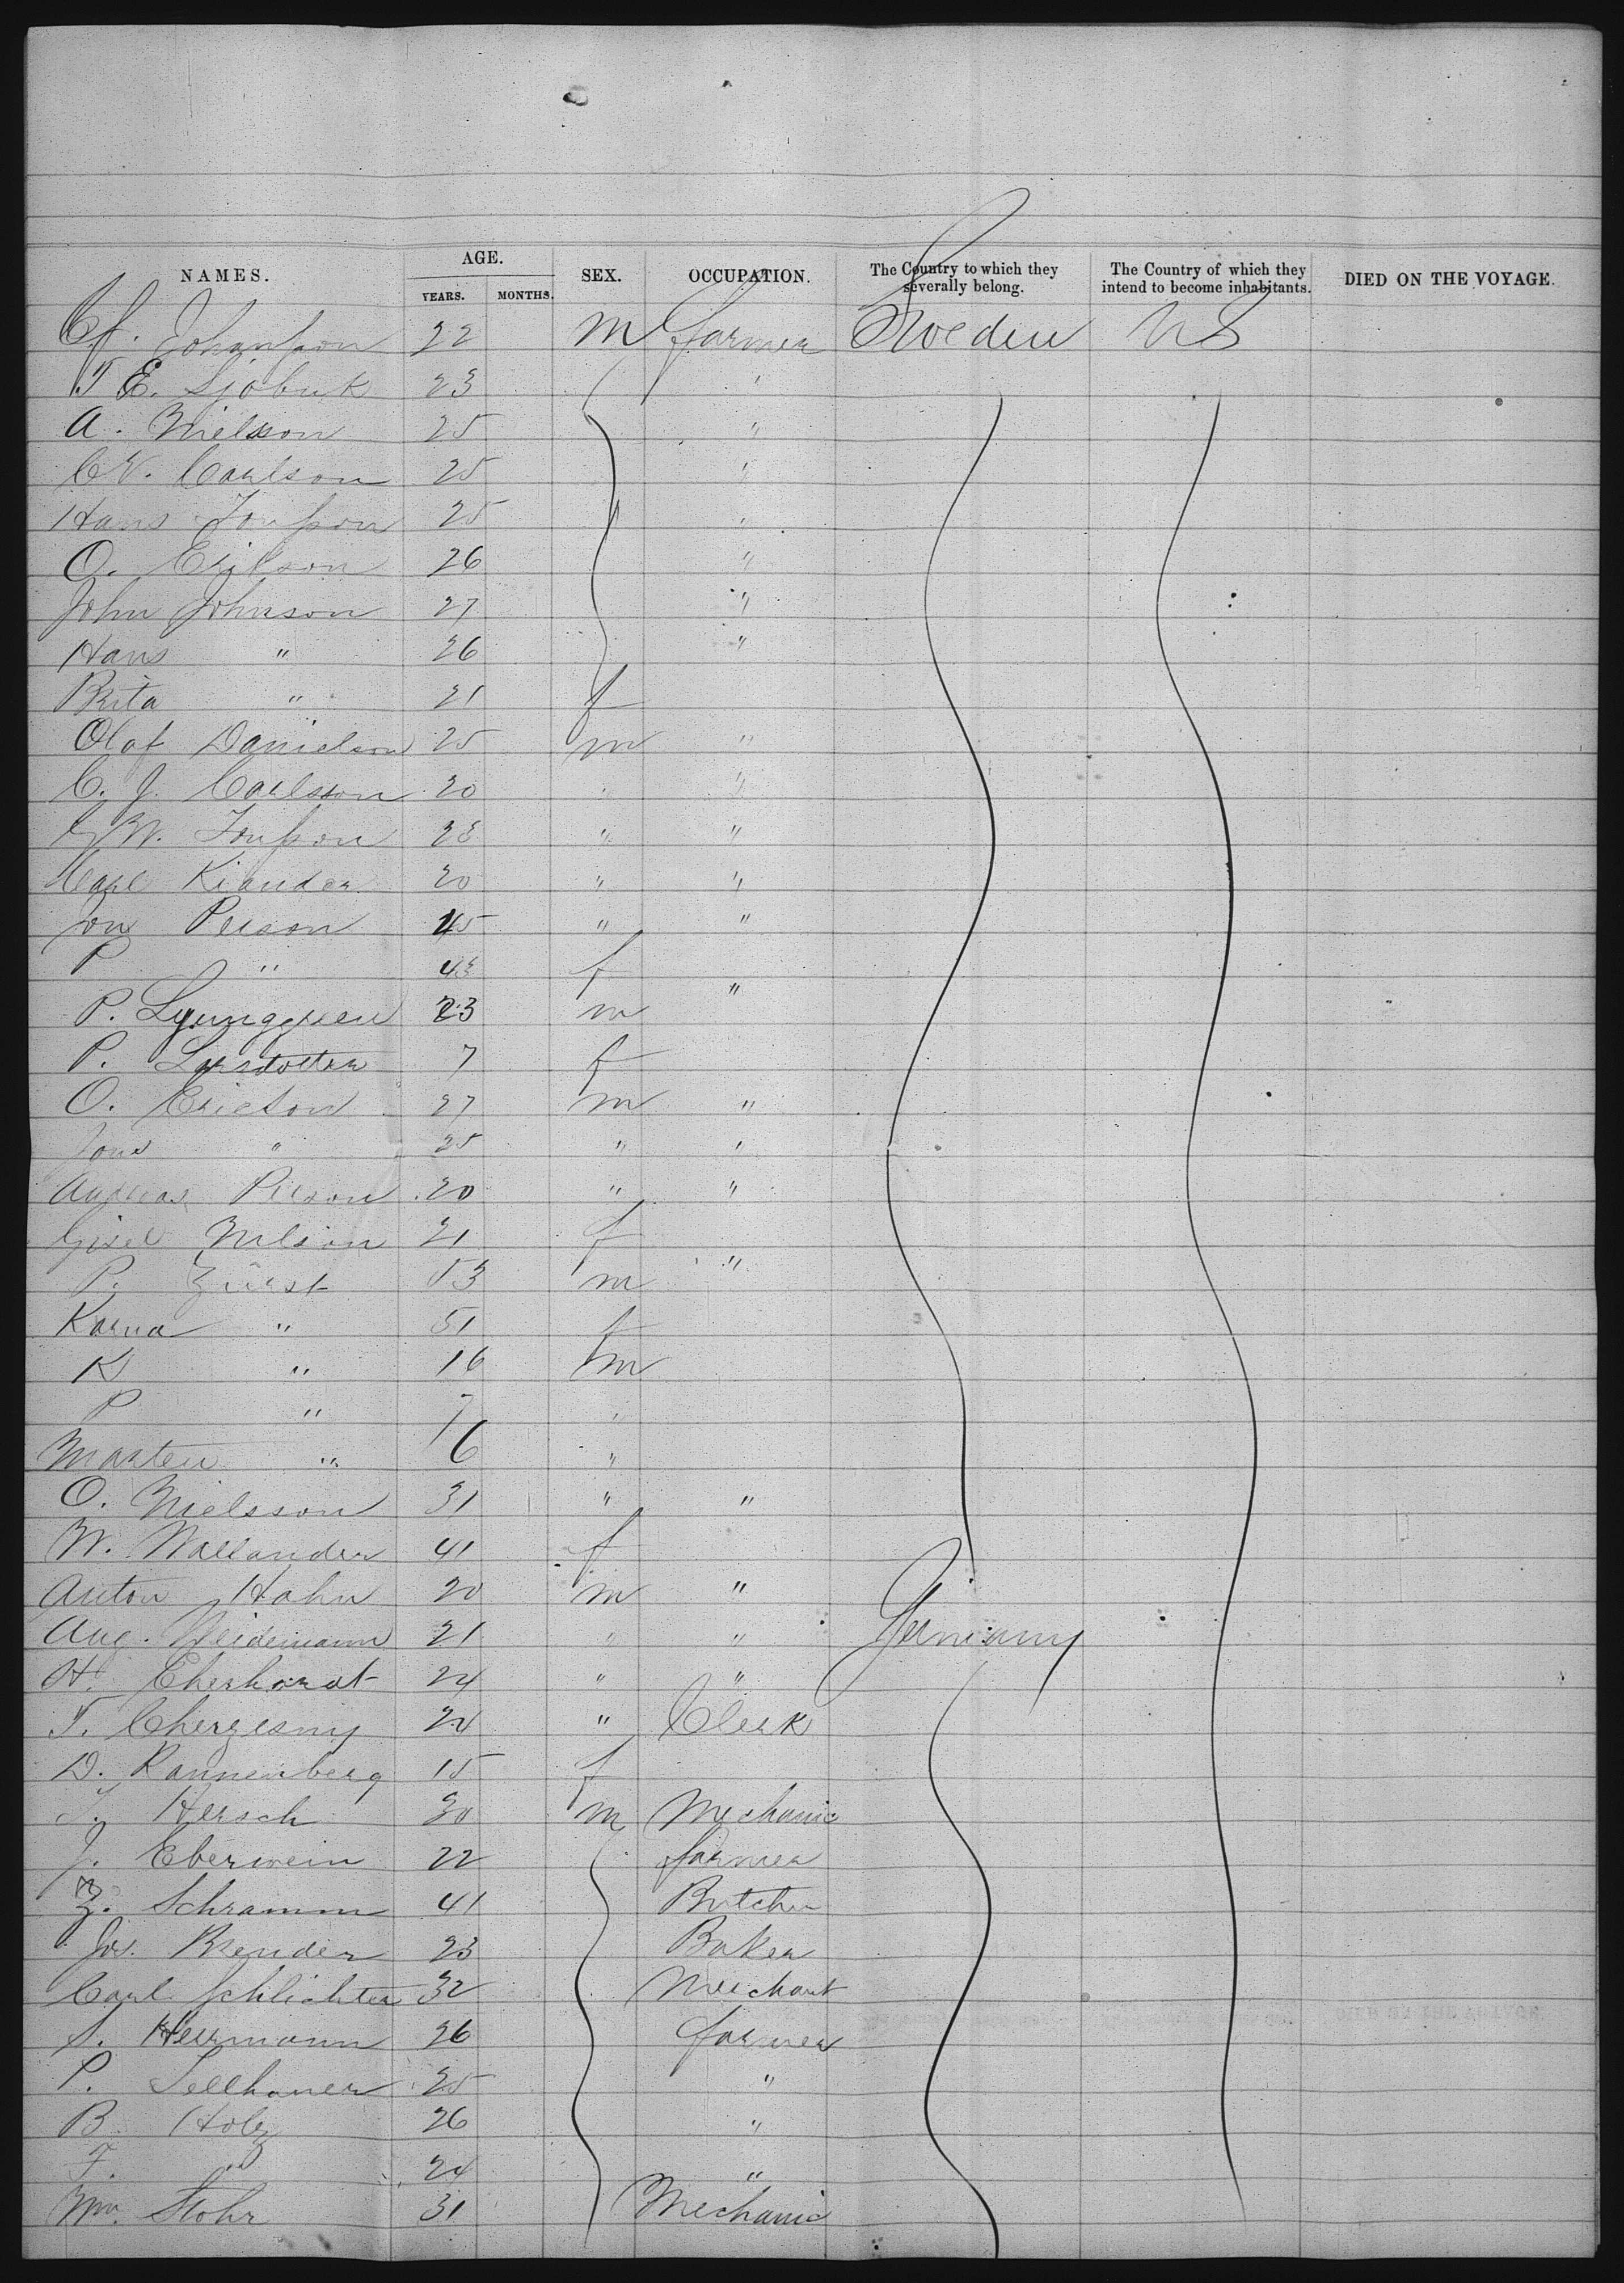 NAMES. AGE. SEX. OCCUPATION. The Country to which they severally belong. The Country of which they intend to become inhabitants. DIED ON THE VOYAGE.
YEARS. MONTHS.
Johansson 22 m farmer Sweden US
T E. Sjobuk 23 "
A. Nielson 25 "
C V. Carlson 25 "
Hans Jonsson 25 "
O. Erikson 26 "
John Johnson 27 "
Hans " 26 "
Brita " 21 f
Olof Danielson 25 m "
C. J. Carlsson 20 " "
W. Jonsson 28 " "
Carl Kiander 20 " "
Jon Person 45 " "
P " 43 f
P. Lyunggreen 23 m "
P. Larsdotter 7 f
O. Ericson 27 m "
Jons " 25 " "
Andreas Person 20 " "
Gisel Nilson 21 f
P. Zürst 53 m "
Karna " 51 f
K " 16 m
P " 7 "
Marten " 6 "
O. Nielsson 31 " "
W. Wallander 41 f
Anton Hahn 20 m "
Aug. Weidemann 21 " " Germany
H. Eberhardt 24 " "
T. Cherzesny 24 " Clerk
D. Rannenberg 15 f
Hersch 30 m Mechanic
J. Eberwein 22 farmer
Z. Schramm 41 Butcher
Jos. Brender 23 Baker
Carl Schlichter 32 Merchant
S. Herrmann 26 farmer
P. Sellhauer 25 "
B. Holz 26 "
F. " 24 "
Wm. Stohr 31 Mechanic